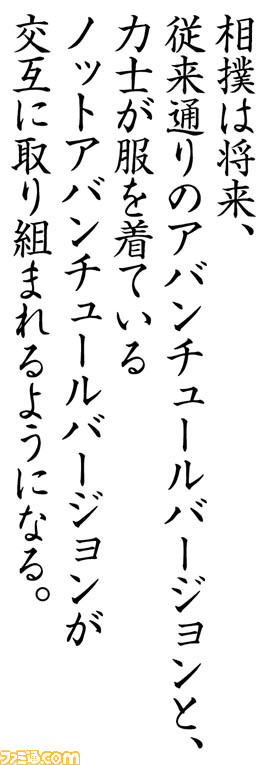 相撲は将来、
従来通りのアバンチュールバージョンと、
力士が服を着ている
ノットアバンチュールバージョンが
交互に取り組まれるようになる。
ファミ通.com